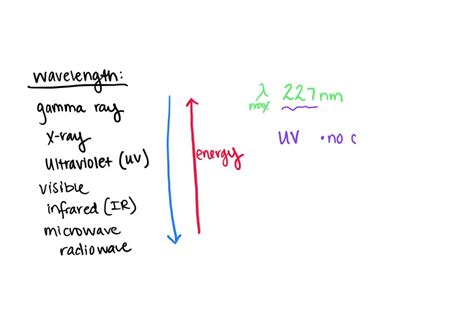 wavelength:
gamma ray
x-ray
ultraviolet (UV)
visible
infrared (IR)
microwave
radiowave
energy
λ max 227nm
UV •no c